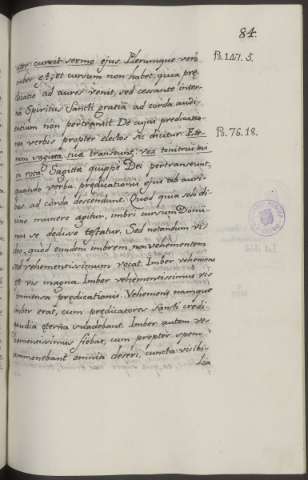 84.
citer currat sermo ejus. Plerumque verò
imber est, et cursum non habet, quia præ-
dicatio ad aures venit, sed cessante inter-
na Spiritus Sancti gratia ad corda audi-
entium non pertransit. De cujus prædicatio-
nis verbis propter electos dicitur Et-
enim sagittæ tuæ transeunt, vox tonitrui tui
in rota. Sagittæ quippe Dei pertranseunt,
quando verba prædicationis ejus ab auri-
bus ad corda descendunt. Quod quia solo di-
vino munere agitur, imbri cursum Domi-
nus se dedisse testatur. Sed notandum vi-
dec, quod eundem imbrem, non vehementem
ad vehementissimum vocat. Imber vehemens
est vis magna. Imber vehementissimus vis
immensa prædicationis. Vehemens namque
imber erat, cum prædicatores Sancti credi
gaudia æterna suadebant. Imber autem ve-
hementissimus fiebat, cum propter spem
admonebant omnia deseri, cuncta visibi-
lia
Ps. 147. 5.
Ps. 76. 18.